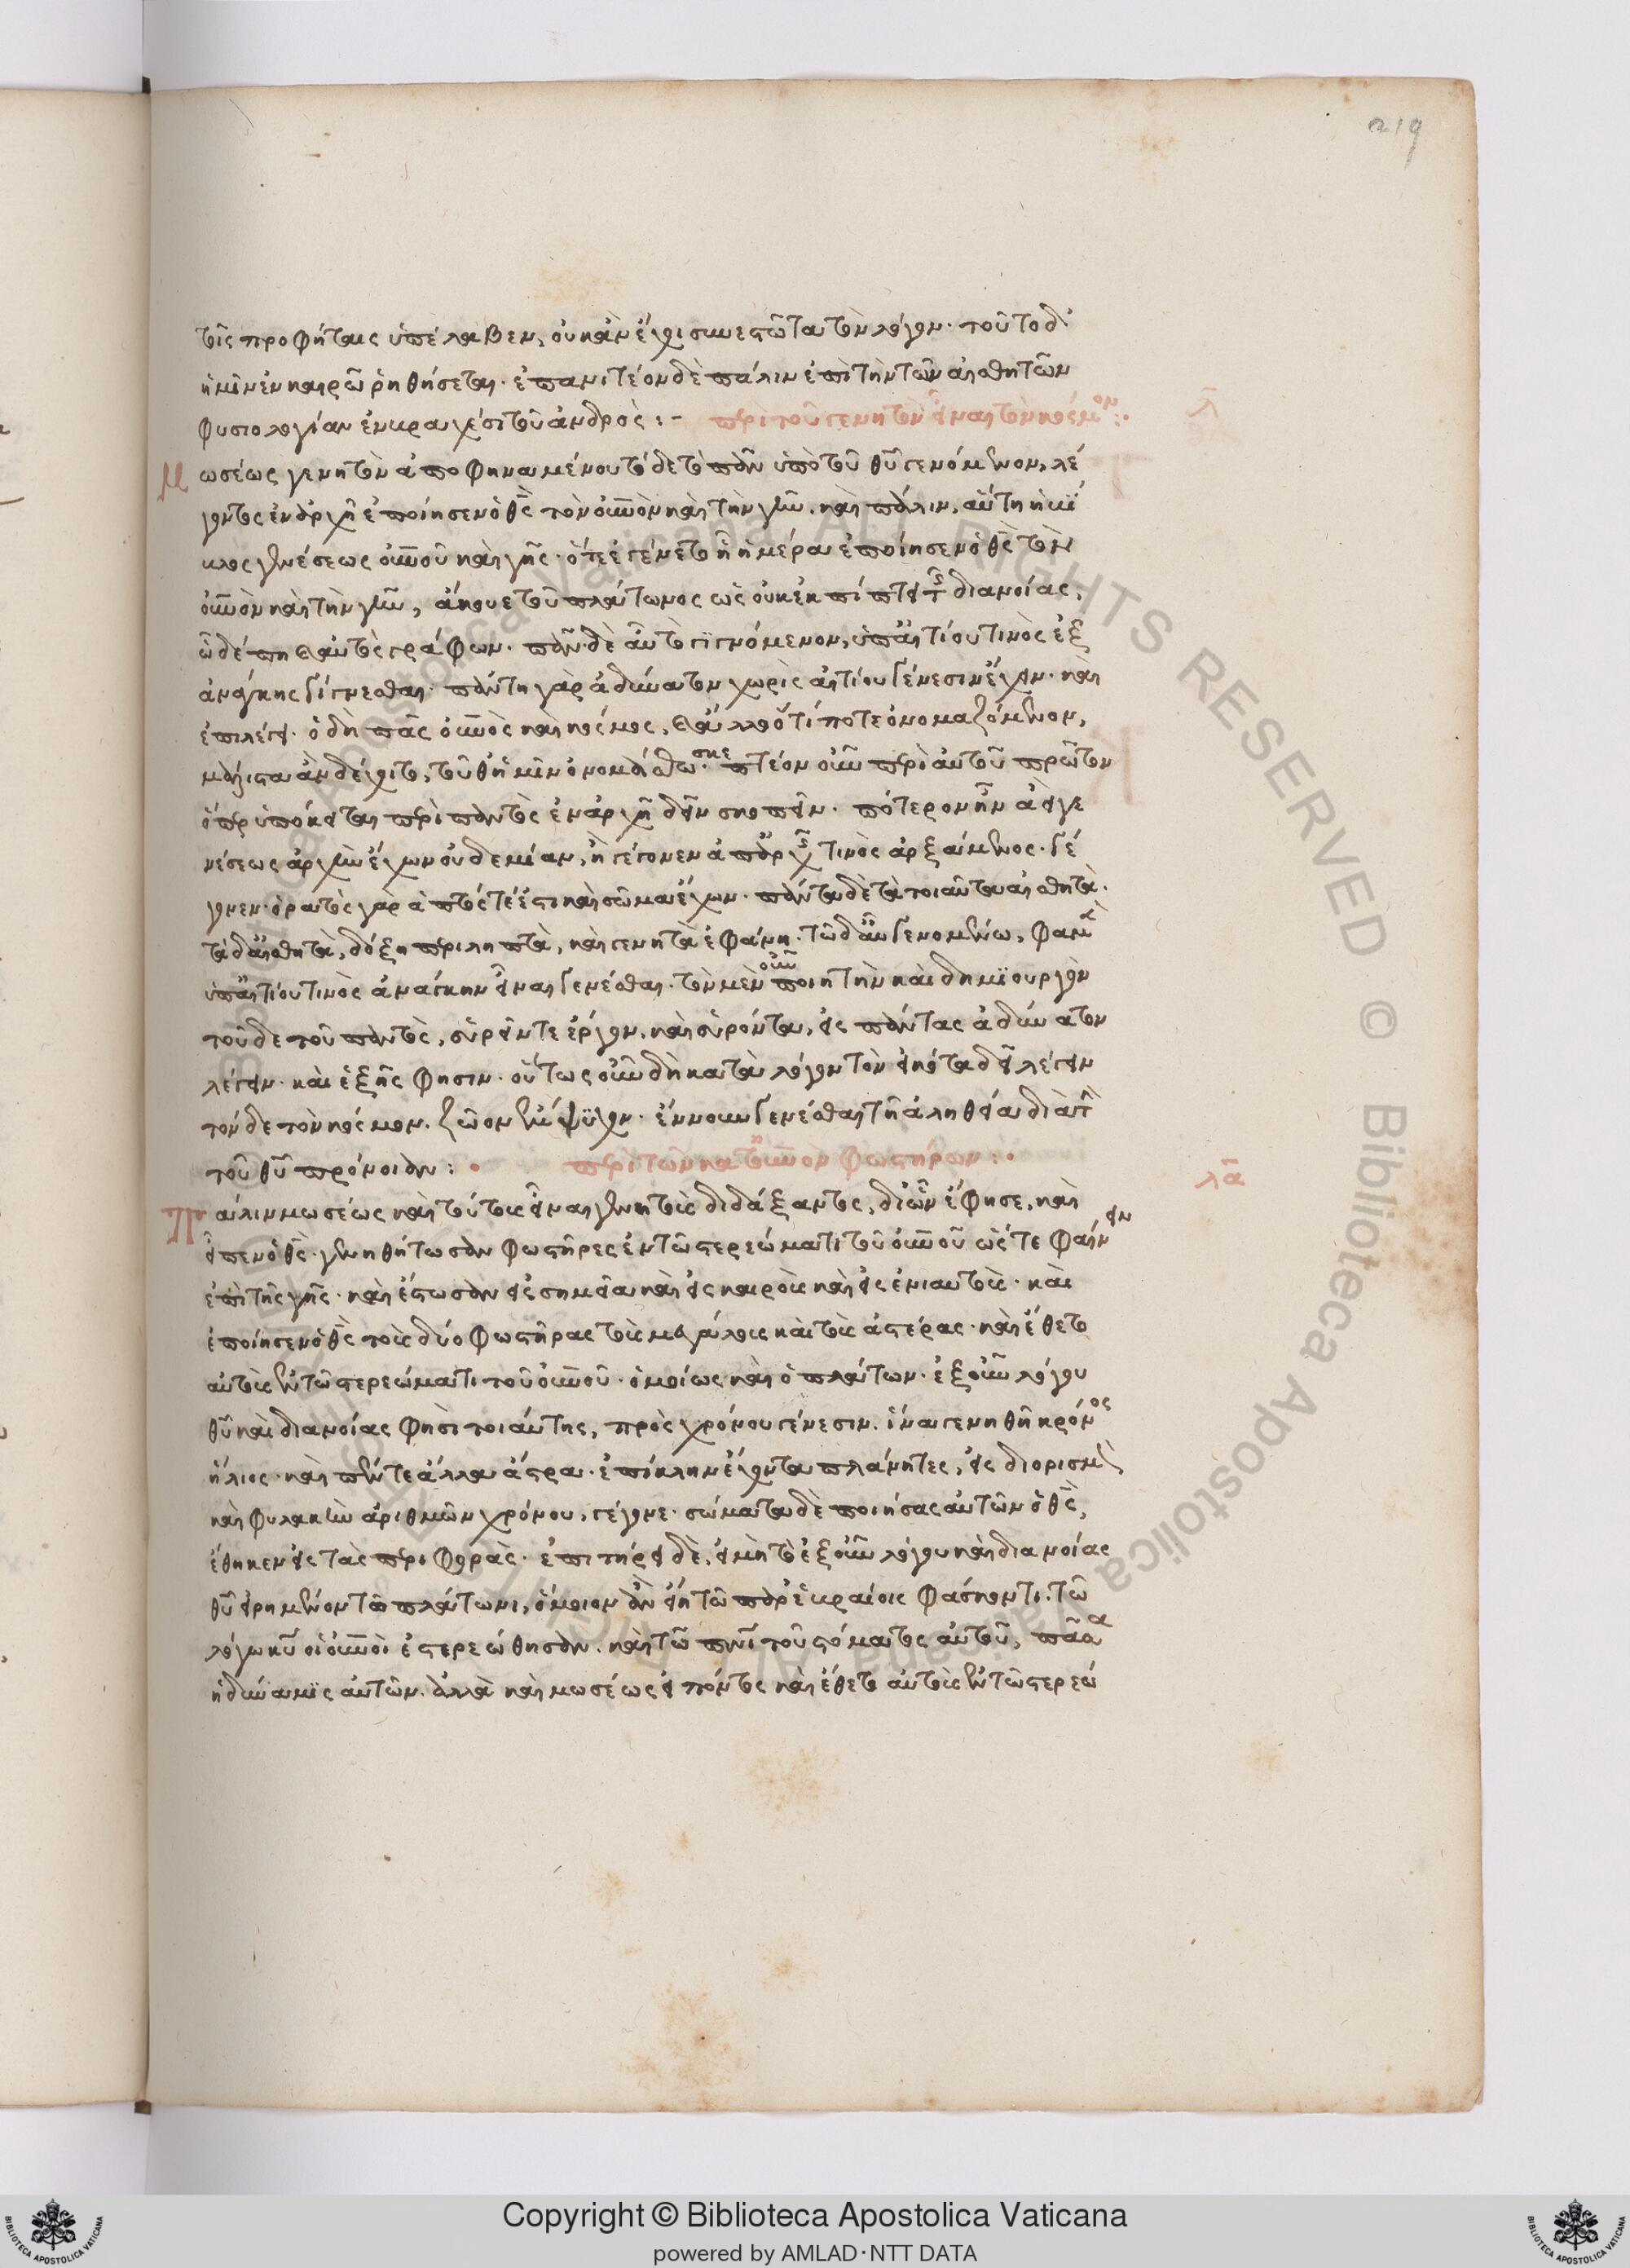 219
τοῖς προφήταις ὑπέλαβεν, οὐκ ἂν ἔχοι συνεστῶτα τὸν λόγον· τοῦτο δ'
ἡμῖν ἐν καιρῷ ῥηθήσεται· ἐπανιτέον δὲ πάλιν ἐπὶ τὴν τῶν αἰσθητῶν
φυσιολογίαν ἐν κραχέσι τοῦ ἀνδρός :- περὶ τοῦ γενητὸν εἶναι τὸν κόσμον :·
λ
Μωσέως γενητὸν ἀποφηναμένου τόδε τὸ πᾶν ὑπὸ τοῦ θυ γενόμενον, λέ
γοντος ἐν ἀρχῇ ἐποίησεν ὁ θς τὸν οὐνον καὶ τὴν γῆν. καὶ πάλιν, αὕτη ἡ βί
βλος γενέσεως οὐνοῦ καὶ γῆς· ὅτε ἐγένετο ᾗ ἡμέρα ἐποίησεν ὁ θς τὸν
οὐνον καὶ τὴν γῆν, ἄκουε τοῦ πλάτωνος ὡς οὐκ ἐκπίπτει τῆς διανοίας,
ὧδέ πη καὶ αὐτὸς γράφων. πᾶν δὲ αὖ τὸ γιγνόμενον, ὑπ' αἰτίου τινὸς ἐξ
ἀνάγκης γίγνεσθαι· πάντη γὰρ ἀδύνατον χωρὶς αἰτίου γένεσιν ἔχειν. καὶ
ἐπιλέγει· ὁ δὴ πᾶς οὐνος καὶ κόσμος, καὶ ἄλλο ὅτί ποτε ὀνομαζόμενον,
μάλιστα ἂν δέχοιτο, τοῦθ' ἡμῖν ὀνομάσθω. σκεπτέον οὖν περὶ αὐτοῦ πρῶτον
ὅπερ ὑπόκειται περὶ παντὸς ἐν ἀρχῇ δεῖν σκοπεῖν. πότερον ἦν ἀεὶ γε
νέσεως ἀρχὴν ἔχων οὐδεμίαν, ἢ γέγονεν ἀπ' ἀρχῆς τινὸς ἀρξάμενος. γέ
γονεν· ὁρατὸς γὰρ ἁπτός τέ ἐστι καὶ σῶμα ἔχων. πάντα δὲ τὰ τοιαῦτα αἰσθητὰ.
τὰ δ' αἰσθητὰ, δόξη περιληπτὰ, καὶ γενητὰ ἐφάνη. τῶ δ' αὖ γενομένω, φαμὲν
ὑπ' αἰτίου τινὸς ἀνάγκην εἶναι γενέσθαι. τὸν μὲν οὖν ποιητὴν καὶ δημϊουργὸν
τοῦδε τοῦ παντὸς, εὑρεῖν τε ἔργον, καὶ εὑρόντα, εἰς πάντας ἀδύνατον
λέγειν. καὶ ἑξῆς φησιν. οὕτως οὖν δὴ κατὰ λόγον τὸν εἰκότα δεῖ λέγειν
τόνδε τὸν κόσμον. ζῶον ἔμψυχον. ἔννουν γενέσθαι τῆ ἀληθεία διὰ τὴν
τοῦ θυ πρόνοιαν : · περὶ τῶν κατ' οὐνον φωστήρων : ·
λα
Πάλιν μωσέως καὶ τούτους εἶναι γενητοὺς διδάξαντος, δι' ὧν ἔφησε, καὶ
εἶπεν ὁ θς. γενηθήτωσαν φωστῆρες ἐν τῶ στερεώματι τοῦ οὐνοῦ ὥστε φαίνειν
ἐπὶ τῆς γῆς. καὶ ἔστωσαν εἰς σημεῖα καὶ εἰς καιροὺς καὶ εἰς ἐνιαυτοὺς. καὶ
ἐποίησεν ὁ θς τοὺς δύο φωστῆρας τοὺς μεγάλους καὶ τοὺς ἀστέρας. καὶ ἔθετο
αὐτοὺς ἐν τῶ στερεώματι τοῦ οὐνοῦ. ὁμοίως καὶ ὁ πλάτων. ἐξ οὖν λόγου
θυ καὶ διανοίας φησὶ τοιαύτης, πρὸς χρόνου γένεσιν. ἵνα γενηθῆ κρόνος
ἥλιος. καὶ πέντε ἄλλα ἄστρα. ἐπίκλην ἔχοντα πλάνητες, εἰς διορισμὸν
καὶ φυλακὴν ἀριθμῶν χρόνου, γέγονε. σώματα δὲ ποιήσας αὐτῶν ὁ θς,
ἔθηκεν εἰς τὰς περιφορὰς. ἐπιτήρει δὲ, εἰ μὴ τὸ ἐξ οὖν λόγου καὶ διανοίας
θυ εἰρημένον τῶ πλάτωνι, ὅμοιον ἂν εἴη τῶ παρ' ἑβραίοις φάσκοντι. τῶ
λόγω κυ οἱ οὐνοὶ ἐστερεώθησαν. καὶ τῶ πνι τοῦ στόματος αὐτοῦ, πᾶσα
ἡ δύναμϊς αὐτῶν. ἀλλὰ καὶ μωσέως εἰπόντος καὶ ἔθετο αὐτοὺς ἐν τῶ στερεώ
Copyright © Biblioteca Apostolica Vaticana
powered by AMLAD·NTT DATA